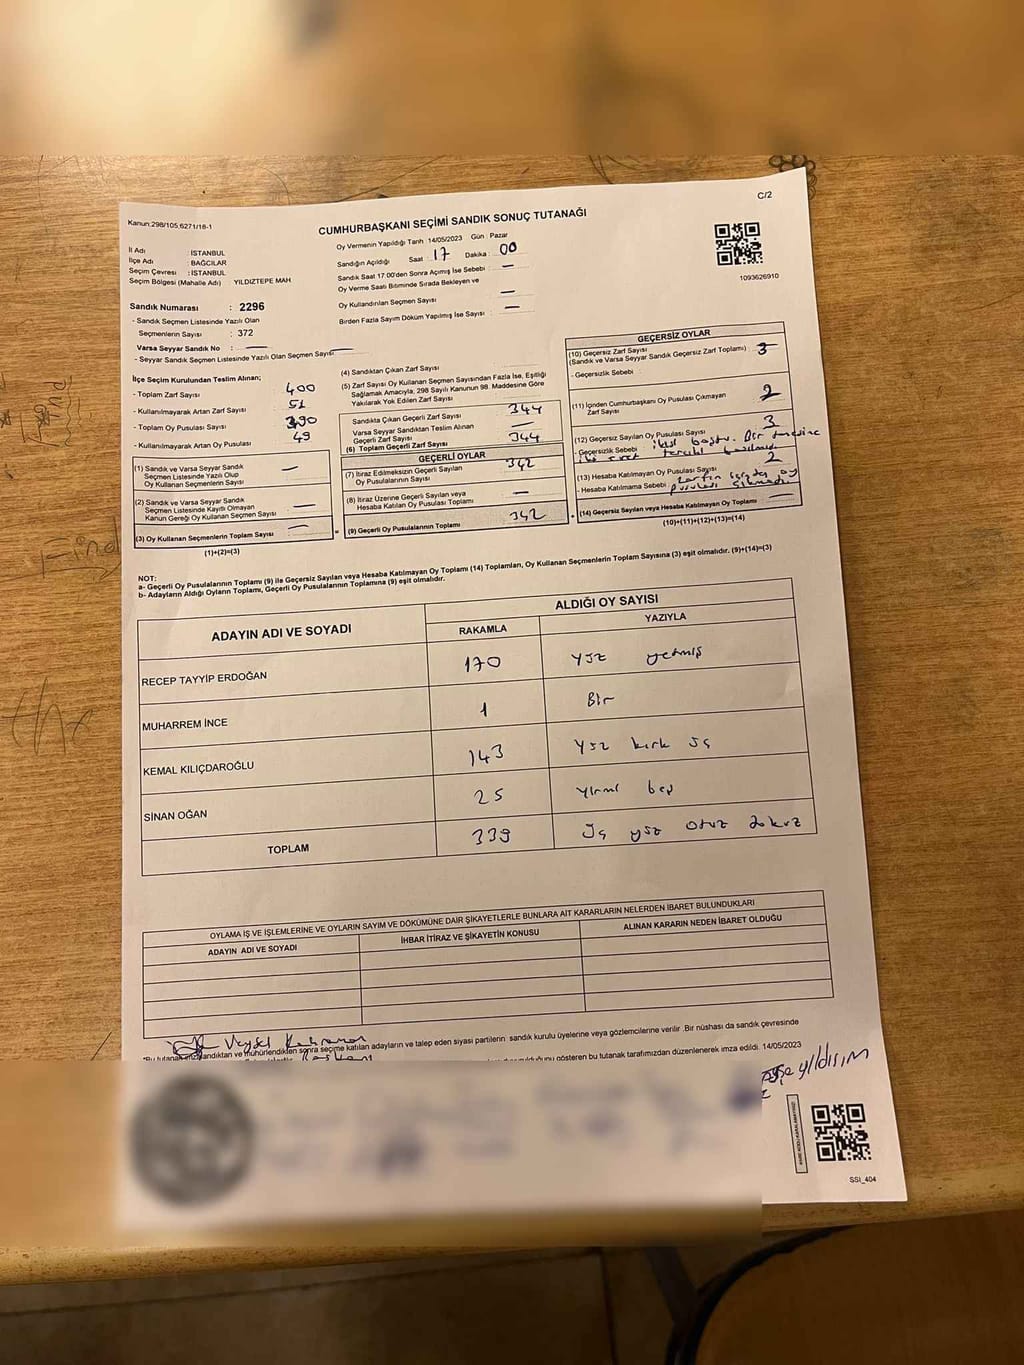 C/2
Kanun:298/105;6271/18-1
CUMHURBAŞKANI SEÇİMİ SANDIK SONUÇ TUTANAĞI
İl Adı : İSTANBUL
İlçe Adı : BAĞCILAR
Seçim Çevresi : İSTANBUL
Seçim Bölgesi (Mahalle Adı) : YILDIZTEPE MAH
Oy Vermenin Yapıldığı Tarih 14/05/2023 Gün : Pazar
Sandığın Açıldığı Saat 17 Dakika : 00
Sandık Saat 17.00'den Sonra Açımış İse Sebebi : —
Oy Verme Saati Bitiminde Sırada Bekleyen ve
Oy Kullandırılan Seçmen Sayısı —
Birden Fazla Sayım Döküm Yapılmış İse Sayısı : —
1093626910
Sandık Numarası : 2296
- Sandık Seçmen Listesinde Yazılı Olan
Seçmenlerin Sayısı : 372
Varsa Seyyar Sandık No : —
- Seyyar Sandık Seçmen Listesinde Yazılı Olan Seçmen Sayısı —
İlçe Seçim Kurulundan Teslim Alınan;
- Toplam Zarf Sayısı 400
- Kullanılmayarak Artan Zarf Sayısı 51
- Toplam Oy Pusulası Sayısı 390
- Kullanılmayarak Artan Oy Pusulası 49
(1) Sandık ve Varsa Seyyar Sandık
Seçmen Listesinde Yazılı Olup
Oy Kullanan Seçmenlerin Sayısı —
(2) Sandık ve Varsa Seyyar Sandık
Seçmen Listesinde Kayıtlı Olmayan
Kanun Gereği Oy Kullanan Seçmen Sayısı —
(3) Oy Kullanan Seçmenlerin Toplam Sayısı —
(1)+(2)=(3)
(4) Sandıktan Çıkan Zarf Sayısı
(5) Zarf Sayısı Oy Kullanan Seçmen Sayısından Fazla İse, Eşitliği
Sağlamak Amacıyla, 298 Sayılı Kanunun 98. Maddesine Göre
Yakılarak Yok Edilen Zarf Sayısı
Sandıkta Çıkan Geçerli Zarf Sayısı 344
Varsa Seyyar Sandıktan Teslim Alınan
Geçerli Zarf Sayısı —
(6) Toplam Geçerli Zarf Sayısı 344
GEÇERLİ OYLAR
(7) İtiraz Edilmeksizin Geçerli Sayılan
Oy Pusulalarının Sayısı 342
(8) İtiraz Üzerine Geçerli Sayılan veya
Hesaba Katılan Oy Pusulası Toplamı —
= (9) Geçerli Oy Pusulalarının Toplamı 342
GEÇERSİZ OYLAR
(10) Geçersiz Zarf Sayısı
(Sandık ve Varsa Seyyar Sandık Geçersiz Zarf Toplamı) 3
- Geçersizlik Sebebi
(11) İçinden Cumhurbaşkanı Oy Pusulası Çıkmayan
Zarf Sayısı 2
(12) Geçersiz Sayılan Oy Pusulası Sayısı 3
- Geçersizlik Sebebi
(13) Hesaba Katılmayan Oy Pusulası Sayısı 2
- Hesaba Katılmama Sebebi
+ (14) Geçersiz Sayılan veya Hesaba Katılmayan Oy Toplamı —
(10)+(11)+(12)+(13)=(14)
NOT:
a- Geçerli Oy Pusulalarının Toplamı (9) ile Geçersiz Sayılan veya Hesaba Katılmayan Oy Toplamı (14) Toplamları, Oy Kullanan Seçmenlerin Toplam Sayısına (3) eşit olmalıdır. (9)+(14)=(3)
b- Adayların Aldığı Oyların Toplamı, Geçerli Oy Pusulalarının Toplamına (9) eşit olmalıdır.
ADAYIN ADI VE SOYADI
ALDIĞI OY SAYISI
RAKAMLA YAZIYLA
RECEP TAYYİP ERDOĞAN 170 yüz yetmiş
MUHARREM İNCE 1 Bir
KEMAL KILIÇDAROĞLU 143 yüz kırk üç
SİNAN OĞAN 25 yirmi beş
TOPLAM 339 üç yüz otuz dokuz
OYLAMA İŞ VE İŞLEMLERİNE VE OYLARIN SAYIM VE DÖKÜMÜNE DAİR ŞİKAYETLERLE BUNLARA AİT KARARLARIN NELERDEN İBARET BULUNDUKLARI
ADAYIN ADI VE SOYADI İHBAR İTİRAZ VE ŞİKAYETİN KONUSU ALINAN KARARIN NEDEN İBARET OLDUĞU
sonra seçime katılan adayların ve talep eden siyasi partilerin sandık kurulu üyelerine veya gözlemcilerine verilir .Bir nüshası da sandık çevresinde
gösteren bu tutanak tarafımızdan düzenlenerek imza edildi. 14/05/2023
SSI_404